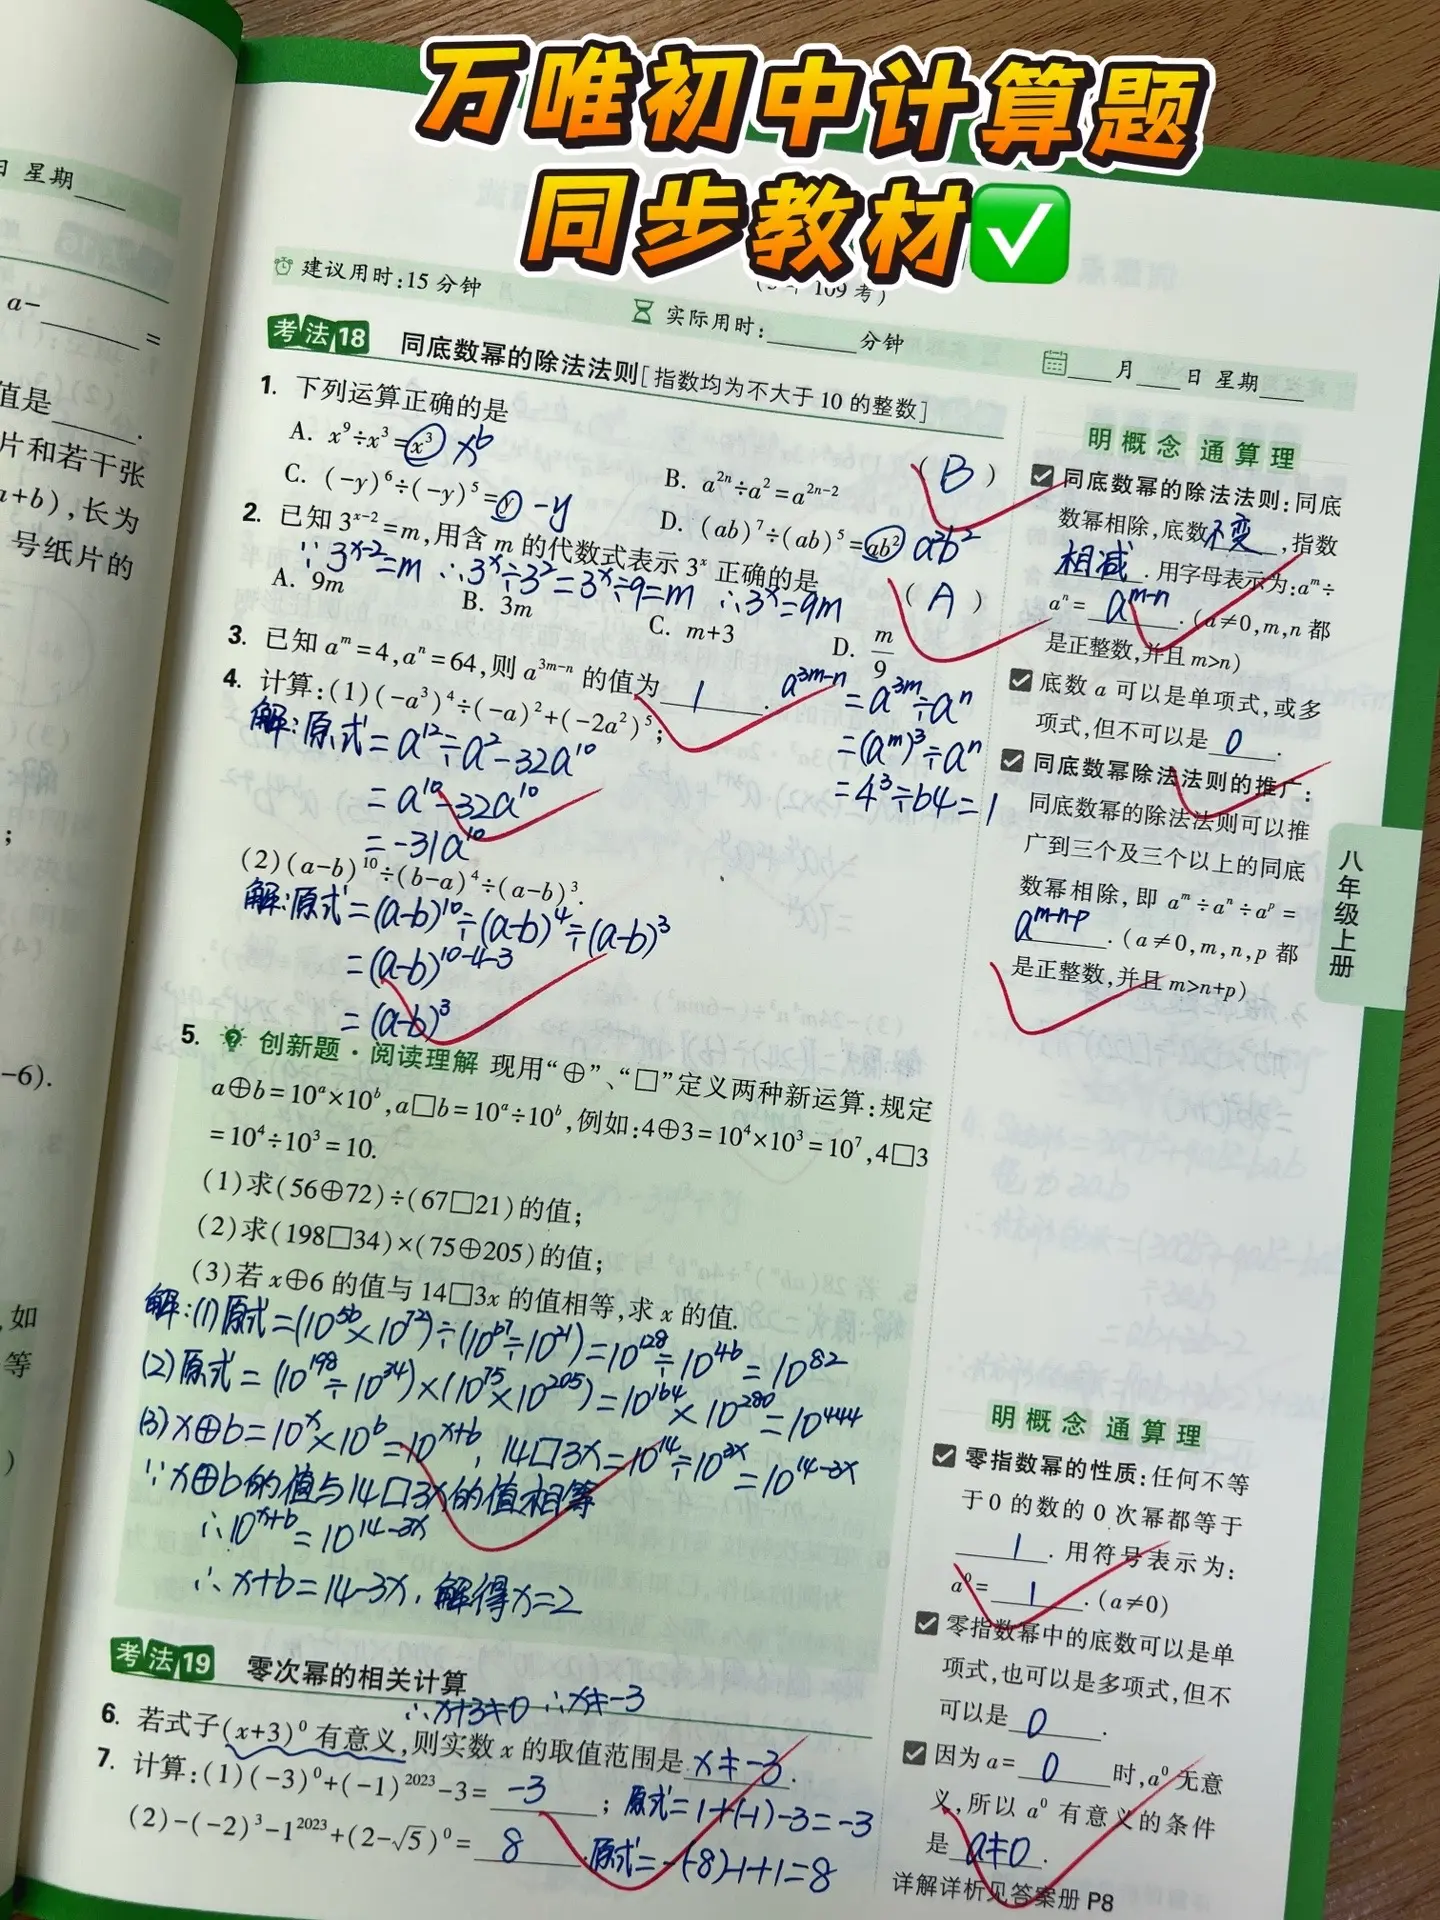 万唯初中计算题
同步教材✅
日 星期
a-____ =
值是____.
片和若干张
a+b),长为
号纸片的
;
-6).
如
等
)
109考)
建议用时:15分钟
实际用时:____分钟
____月____日 星期____
考法18 同底数幂的除法法则[指数均为不大于10的整数]
1. 下列运算正确的是 ( B )
A. x⁹÷x³=x³ x⁶
B. a²ⁿ÷a²=a²ⁿ⁻²
C. (-y)⁶÷(-y)⁵=y -y
D. (ab)⁷÷(ab)⁵=ab² a²b²
2. 已知3ˣ⁻²=m,用含m的代数式表示3ˣ正确的是 ( A )
∵3ˣ⁻²=m ∴3ˣ÷3²=3ˣ÷9=m ∴3ˣ=9m
A. 9m B. 3m C. m+3 D. m/9
3. 已知aᵐ=4,aⁿ=64,则a³ᵐ⁻ⁿ的值为 1 .
a³ᵐ⁻ⁿ
=a³ᵐ÷aⁿ
=(aᵐ)³÷aⁿ
=4³÷64=1
4. 计算:(1)(-a³)⁴÷(-a)²+(-2a²)⁵;
解:原式=a¹²÷a²-32a¹⁰
=a¹⁰-32a¹⁰
=-31a¹⁰
(2)(a-b)¹⁰÷(b-a)⁴÷(a-b)³.
解:原式=(a-b)¹⁰÷(a-b)⁴÷(a-b)³
=(a-b)¹⁰⁻⁴⁻³
=(a-b)³
5. 创新题·阅读理解 现用“⊕”、“□”定义两种新运算:规定
a⊕b=10ᵃ×10ᵇ,a□b=10ᵃ÷10ᵇ,例如:4⊕3=10⁴×10³=10⁷,4□3
=10⁴÷10³=10.
(1)求(56⊕72)÷(67□21)的值;
(2)求(198□34)×(75⊕205)的值;
(3)若x⊕6的值与14□3x的值相等,求x的值.
解:(1)原式=(10⁵⁶×10⁷²)÷(10⁶⁷÷10²¹)=10¹²⁸÷10⁴⁶=10⁸²
(2)原式=(10¹⁹⁸÷10³⁴)×(10⁷⁵×10²⁰⁵)=10¹⁶⁴×10²⁸⁰=10⁴⁴⁴
(3)x⊕6=10ˣ×10⁶=10ˣ⁺⁶,14□3x=10¹⁴÷10³ˣ=10¹⁴⁻³ˣ
∵x⊕6的值与14□3x的值相等
∴10ˣ⁺⁶=10¹⁴⁻³ˣ
∴x+6=14-3x,解得x=2
考法19 零次幂的相关计算
∴x+3≠0 ∴x≠-3
6. 若式子(x+3)⁰有意义,则实数x的取值范围是 x≠-3 .
7. 计算:(1)(-3)⁰+(-1)²⁰²³-3= -3 ; 原式=1+(-1)-3=-3
(2)-(-2)³-1²⁰²³+(2-√5)⁰= 8 . 原式=-(-8)-1+1=8
明概念 通算理
同底数幂的除法法则:同底
数幂相除,底数不变,指数
相减.用字母表示为:aᵐ÷
aⁿ= aᵐ⁻ⁿ .(a≠0,m,n都
是正整数,并且m>n)
底数a可以是单项式,或多
项式,但不可以是 0 .
同底数幂除法法则的推广:
同底数幂的除法法则可以推
广到三个及三个以上的同底
数幂相除,即aᵐ÷aⁿ÷aᵖ=
aᵐ⁻ⁿ⁻ᵖ .(a≠0,m,n,p都
是正整数,并且m>n+p)
八年级上册
明概念 通算理
零指数幂的性质:任何不等
于0的数的0次幂都等于
1 .用符号表示为:
a⁰= 1 .(a≠0)
零指数幂中的底数可以是单
项式,也可以是多项式,但不
可以是 0 .
因为a= 0 时,a⁰无意
义,所以a⁰有意义的条件
是 a≠0 .
详解详析见答案册P8